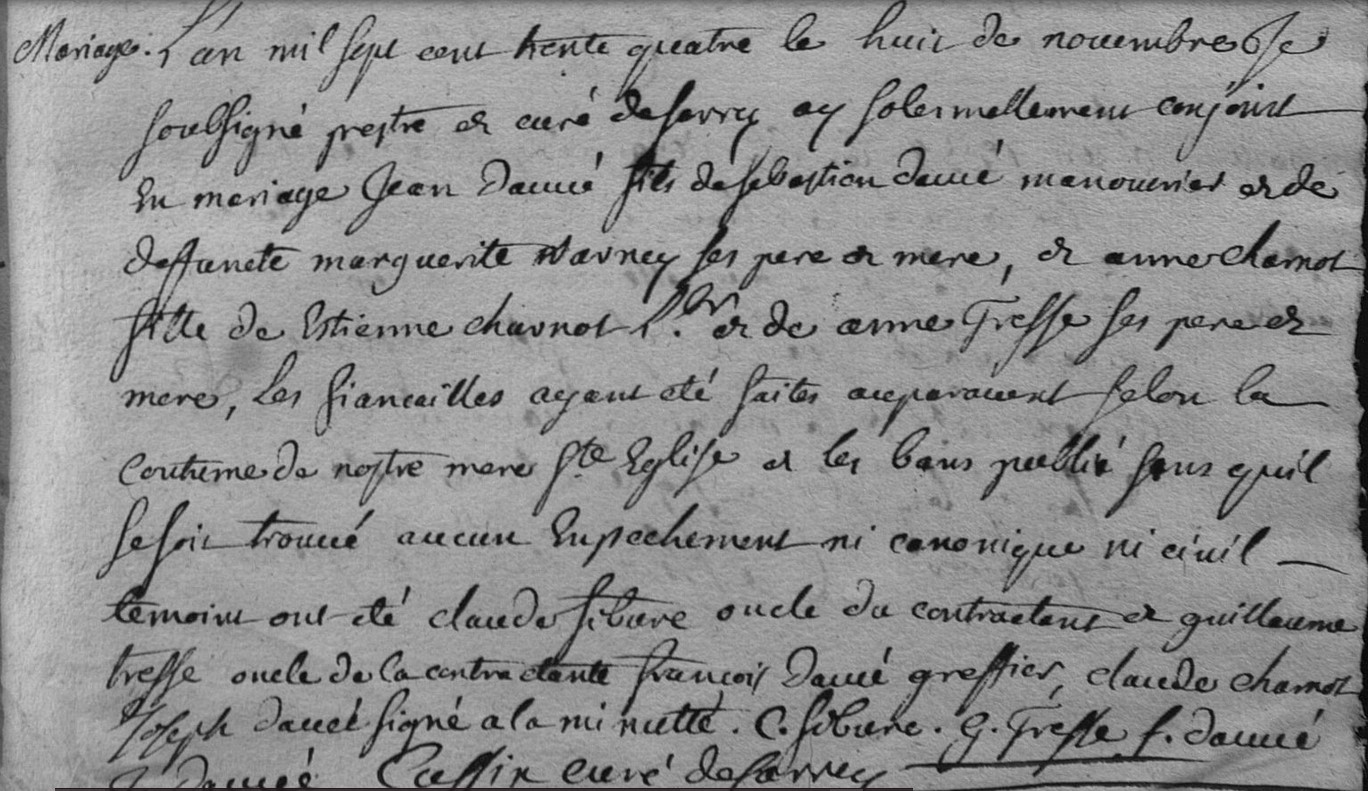 Mariage. L'an mil sept cent trente quatre le huit de nouembre Je
soubsigné prestre et curé de sarry ay solemnellement conjoint
En mariage Jean Daué fils de sebastien daué manouurier et de
deffuncte marguerite Navney ses pere et mere, et anne charnot
fille de Estienne charnot L.^r et de anne Tresse ses pere et
mere, les fiancailles ayant eté faites auparauent selon la
coutume de nostre mere S^te Eglise et les bans publié sans quil
se soit trouué aucun Enpechement ni canonique ni ciuil
temoins ont eté claude sibure oncle du contractant et guillaume
tresse oncle de la contractante francois Daué greffier, claude charnot
Joseph daué signé a la minutte. C. sibure. G. Tresse f. daué
J. daué Cassin curé de sarry